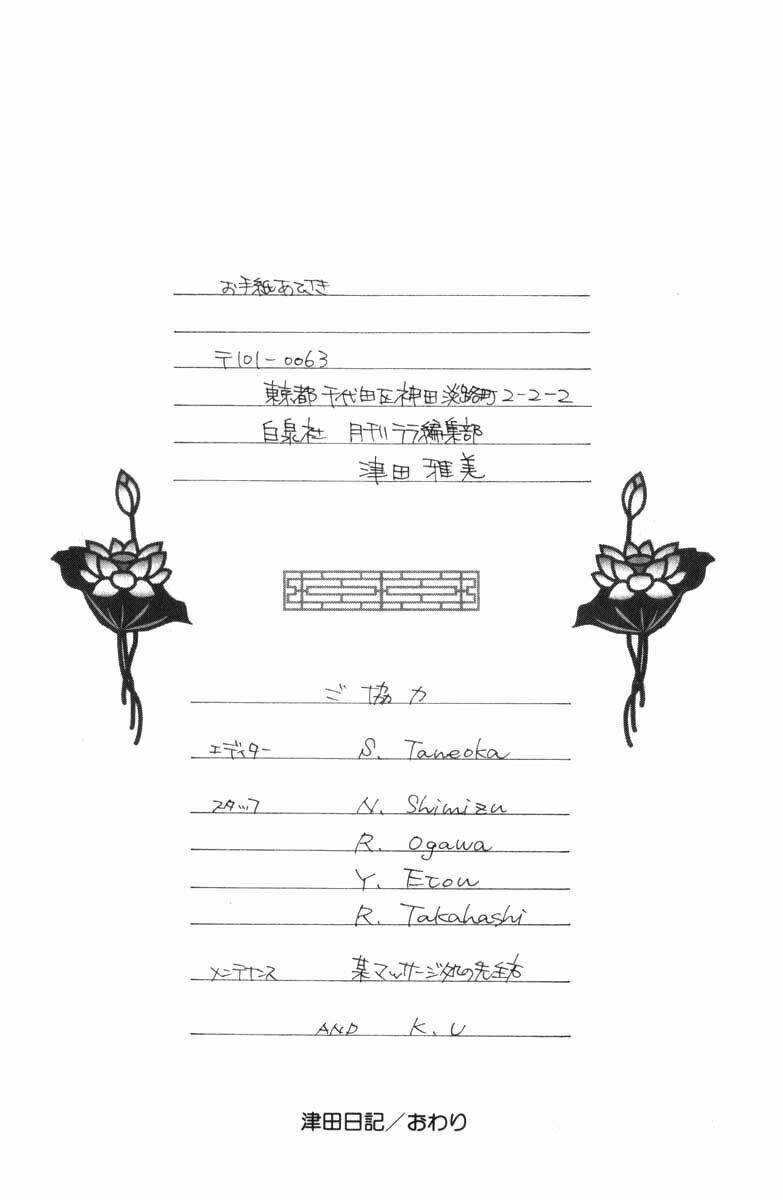 お手紙あてさき
〒101-0063
東京都千代田区神田淡路町2-2-2
白泉社 月刊ララ編集部
津田 雅美
ご協力
エディター S. Taneoka
スタッフ N. Shimizu
R. Ogawa
Y. Etou
R. Takahashi
メンテナンス 某マッサージ処の先生方
AND K.U
津田日記／おわり